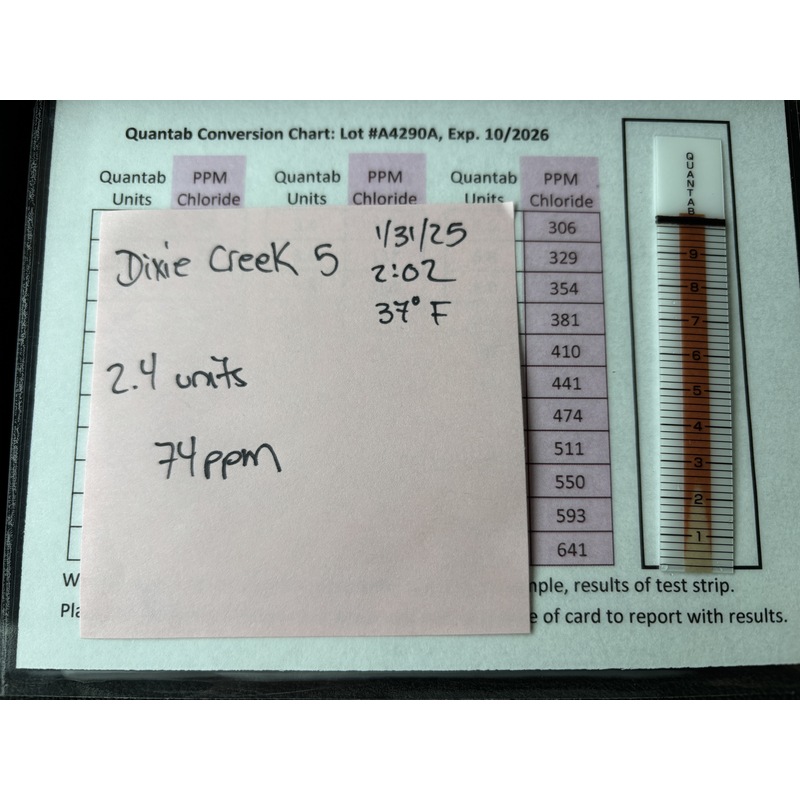 Quantab Conversion Chart: Lot #A4290A, Exp. 10/2026
Quantab Units PPM Chloride Quantab Units PPM Chloride Quantab Units PPM Chloride
306
329
354
381
410
441
474
511
550
593
641
Dixie Creek 5
1/31/25
2:02
37° F
2.4 units
74 ppm
QUANTAB
9
8
7
6
5
4
3
2
1
results of test strip.
of card to report with results.